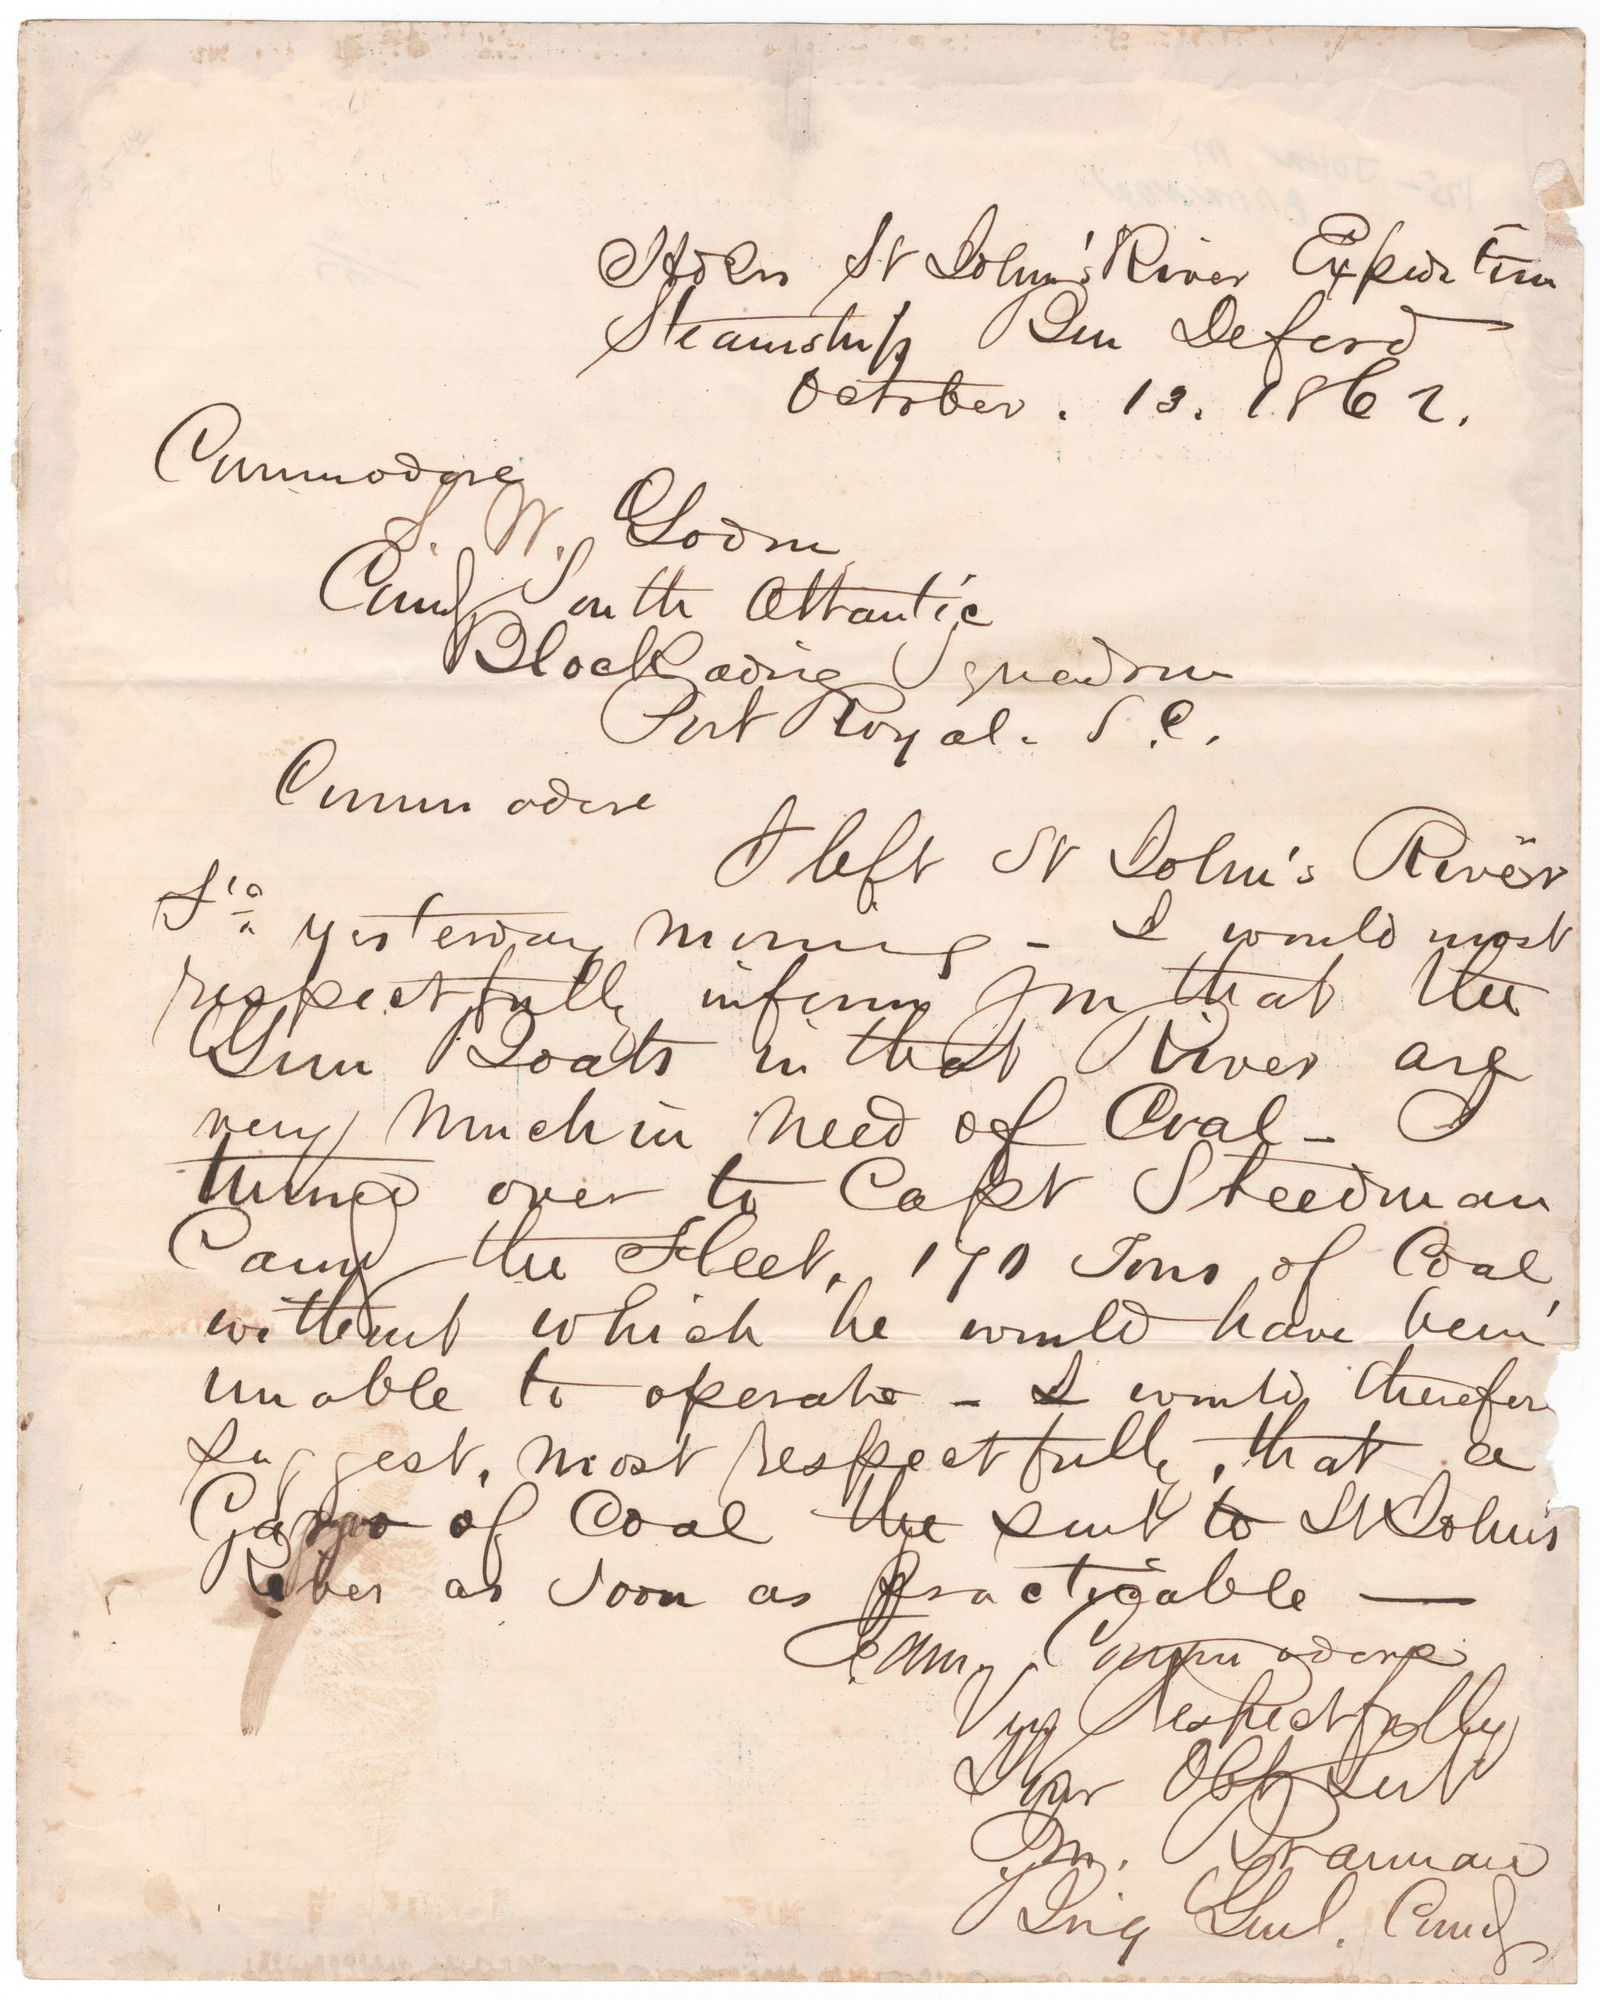 Hd Qrs St John's River Expedition
Steamship Ben Deford
October. 13. 1862.
Commodore
S. W. Godon
Comdg South Atlantic
Blockading Squadron
Port Royal. S.C.
Commodore
I left St John's River
Fla yesterday morning - I would most
respectfully inform you that the
Gun Boats in that River are
very much in need of Coal - I
turned over to Capt Steedman
Comg the Fleet, 170 Tons of Coal
without which he would have been
unable to operate - I would therefor
suggest, most respectfully, that a
Cargo of Coal be sent to St John's
River as soon as practicable —
I am, Commodore
Very Respectfully
Your Obt Sert
J.M. Brannan
Brig Genl. Comdg